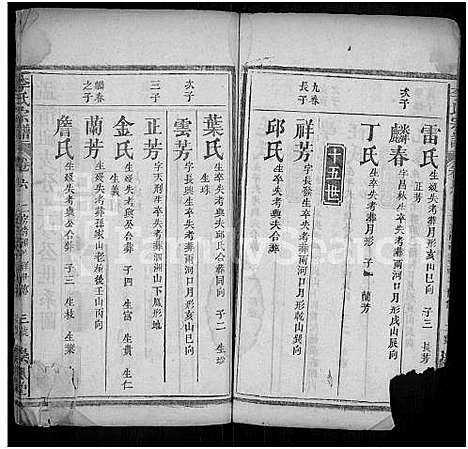 雷氏 生終失考葬月形亥山巳向
正芳
次子
麟春 字昌秋生卒失考葬雨河口月形戌山辰向
丁氏 生卒失考葬月形 子一 蘭芳
十五世
九春長子
祥芳 字 生卒失考葬雨河口月形乾山巽向
邱氏 生卒失考與夫合葬
次子
雲芳 字長興生卒失考葬雨河口月形亥山巳向
葉氏 生卒失考與夫邱氏合葬同向 子二 生珍
生珠
三子
正芳 字天刑生卒失考葬泗洲山下鳳形地
金氏 生終失考與公合葬 子四 生富 生貴 生仁
生義
麟春之子
蘭芳 字 生卒失考葬 山老屋後壬山丙向
詹氏 生終失考與公合葬 子三 生枝 生樂
李氏宗譜 卷六